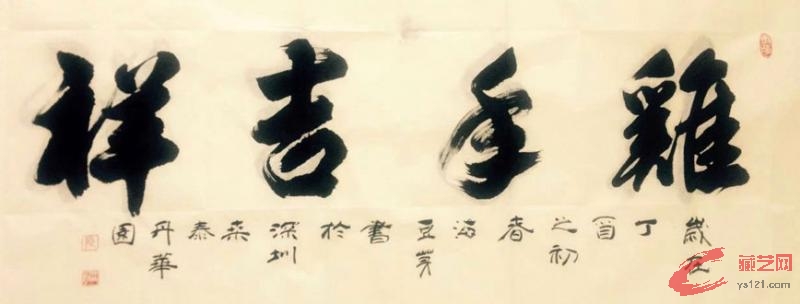 雞年吉祥
歲在丁酉之初春海豆芽書於深圳桑泰丹華園
藏艺网
ys121.com